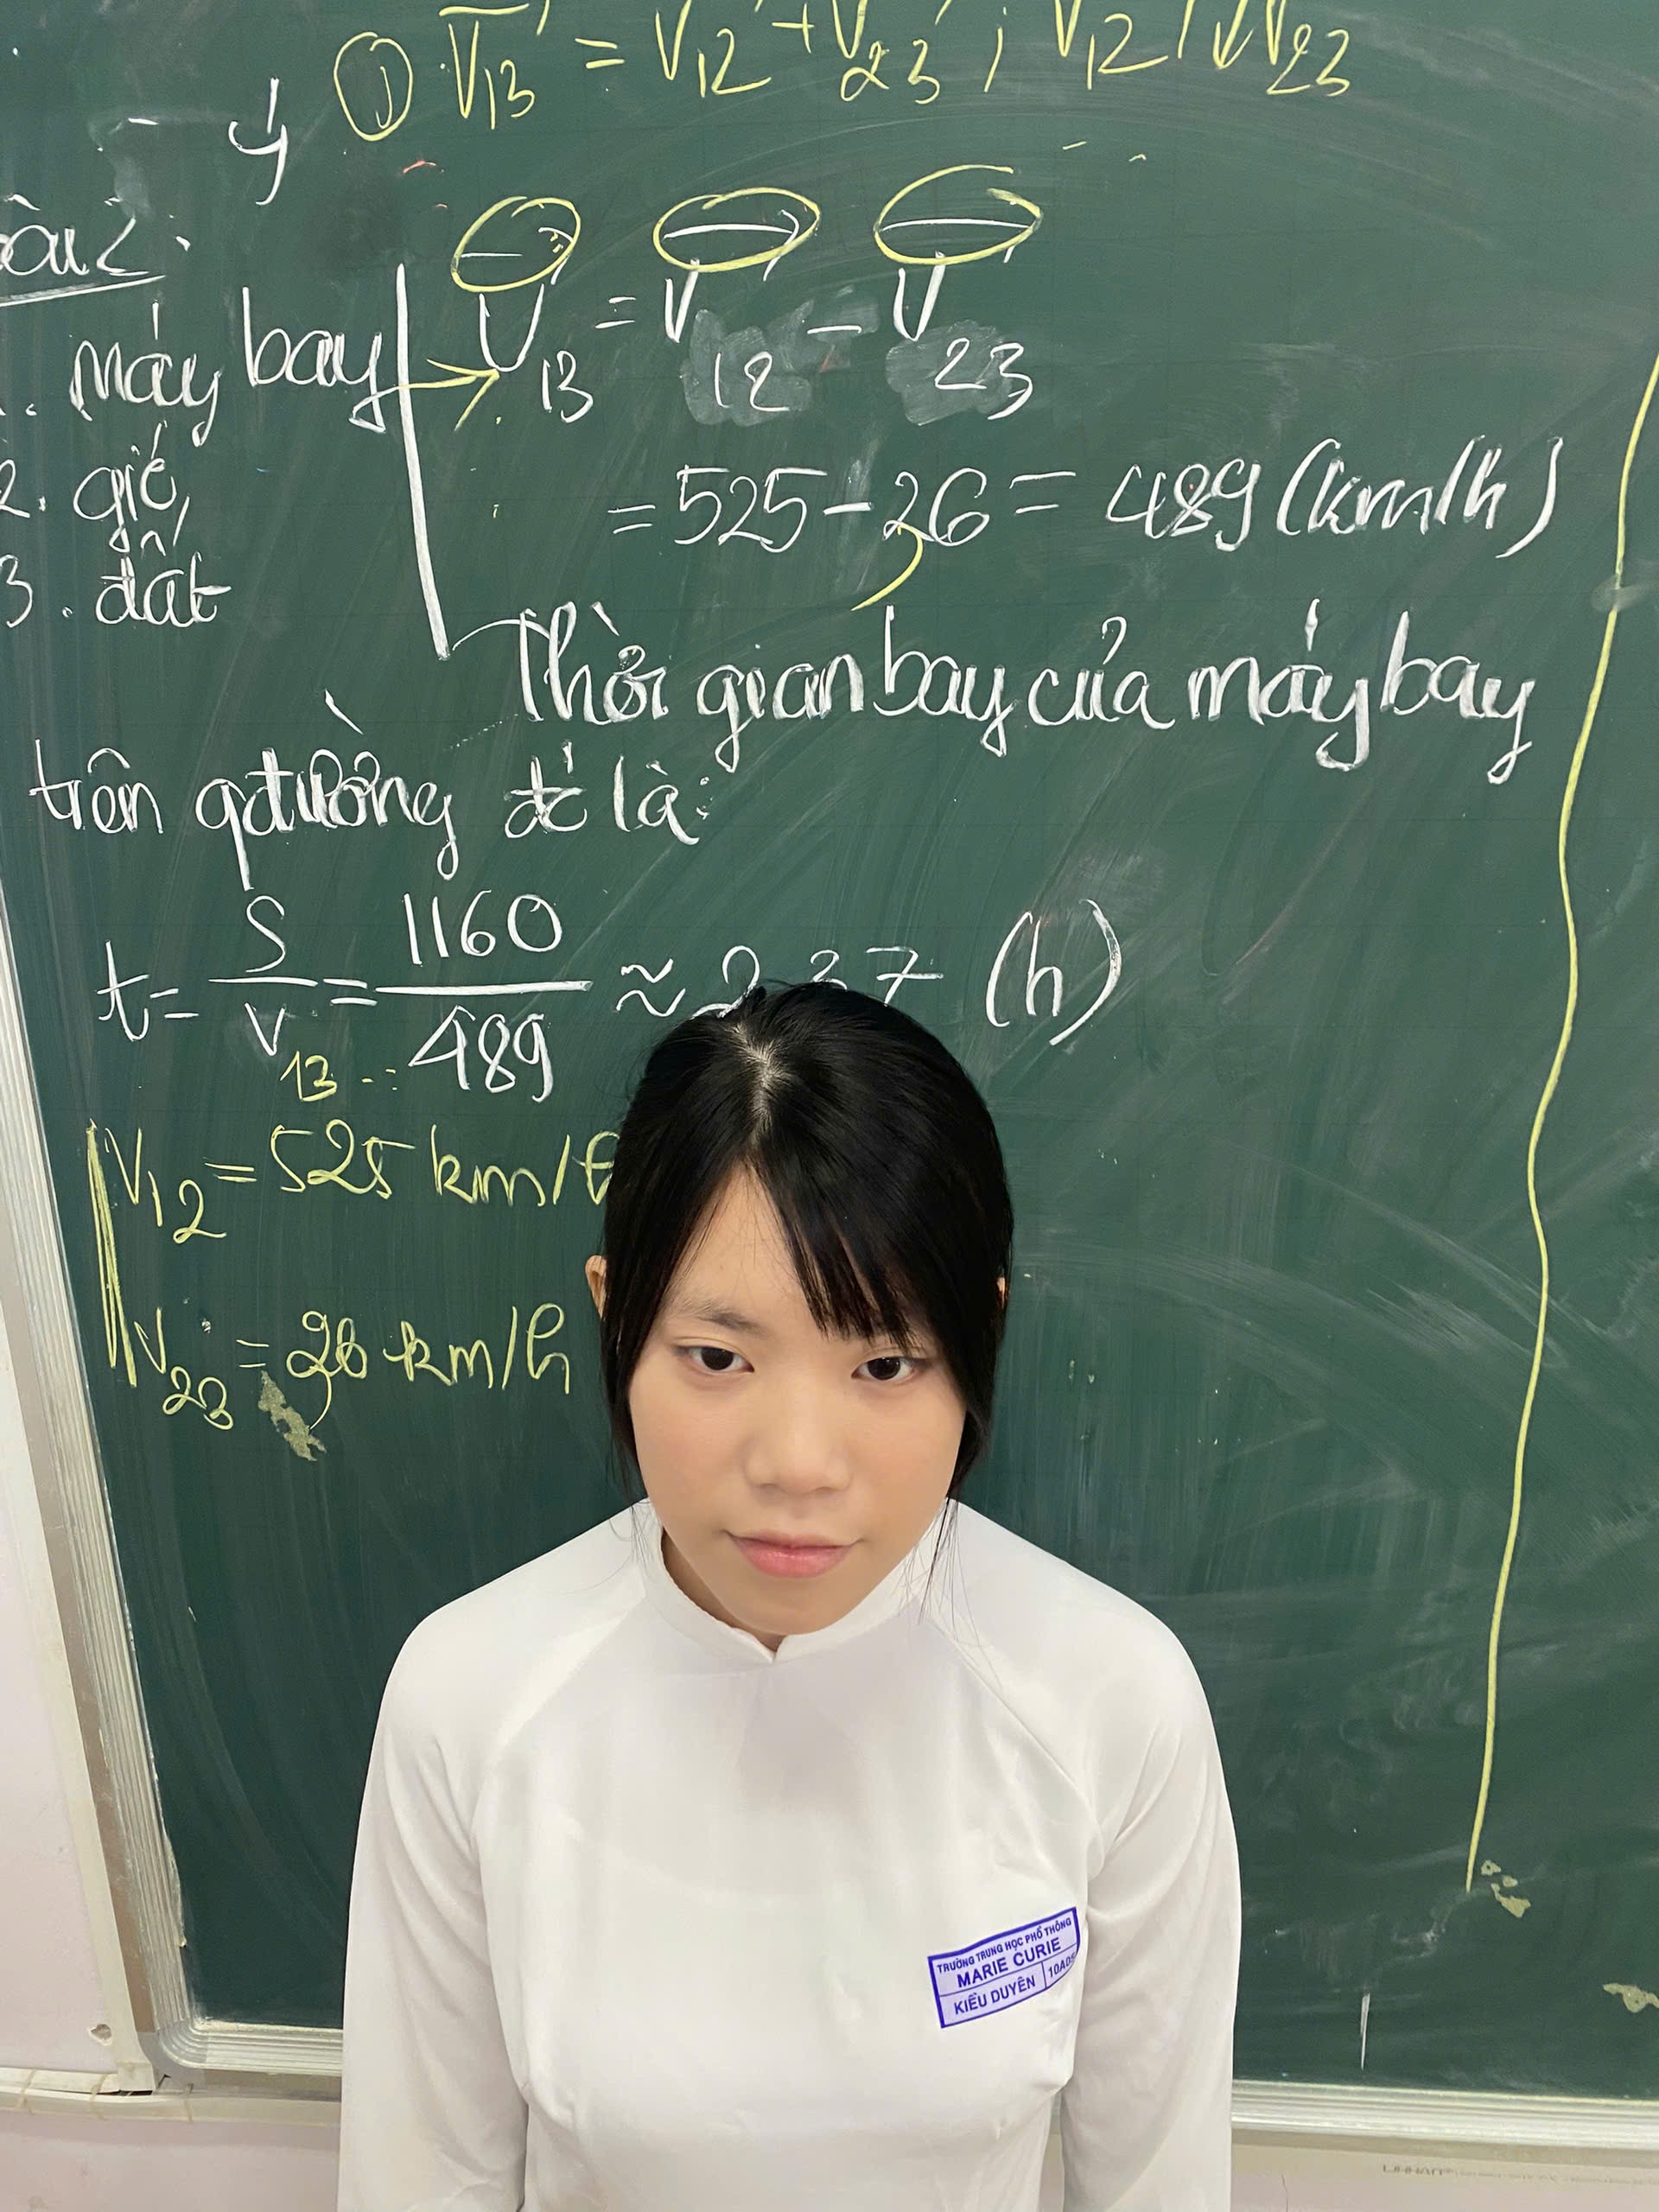 ① V₁₃ = V₁₂ + V₂₃ ; V₁₂ ↑↓ V₂₃
ý
2.
máy bay
2. gió
3. đất
→ V₁₃ = V₁₂ - V₂₃
= 525 - 36 = 489 (km/h)
Thời gian bay của máy bay
trên qđường đó là:
t = S/V₁₃ = 1160/489 ≈ 2,37 (h)
V₁₂ = 525 km/h
V₂₃ = 36 km/h
TRƯỜNG TRUNG HỌC PHỔ THÔNG
MARIE CURIE
KIỀU DUYÊN